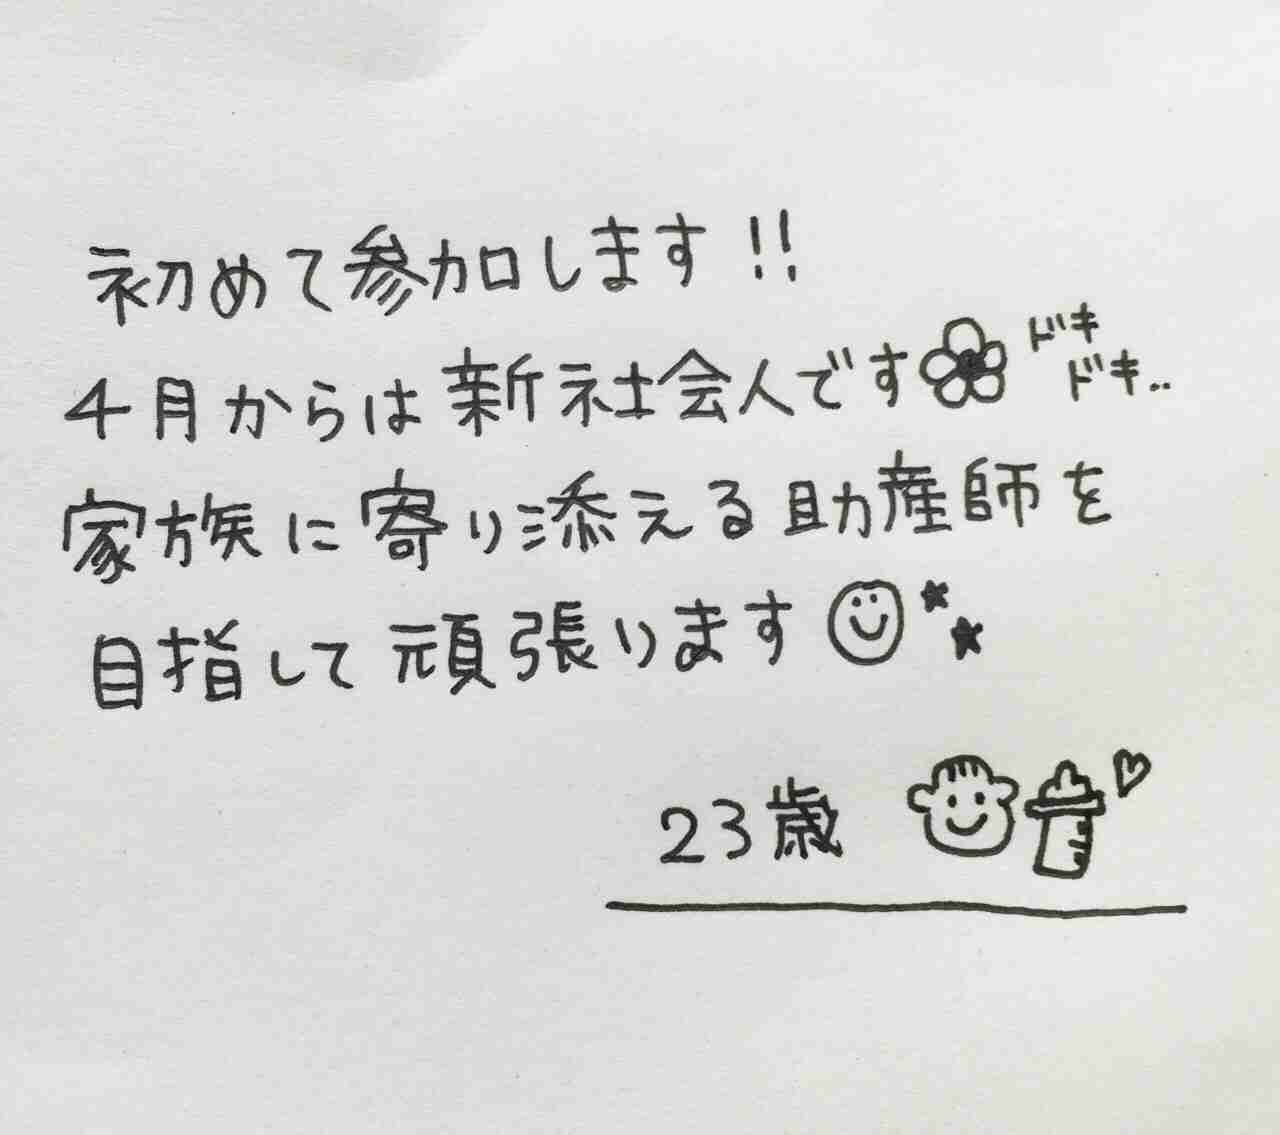 初めて参加します!!
4月からは新社会人です ドキドキ..
家族に寄り添える助産師を
目指して頑張ります
23歳